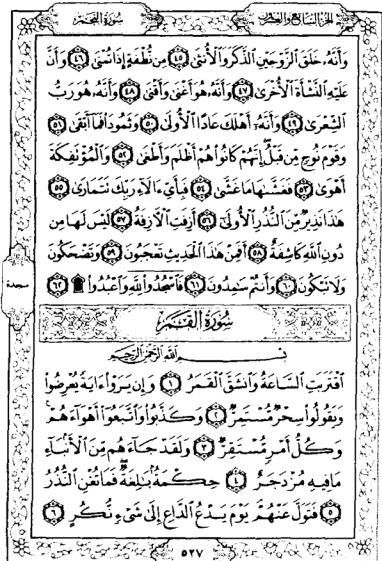 الجزء السابع والعشرون سورة النجم
وَأَنَّهُۥ خَلَقَ ٱلزَّوْجَيْنِ ٱلذَّكَرَ وَٱلْأُنثَىٰ ٤٥ مِن نُّطْفَةٍ إِذَا تُمْنَىٰ ٤٦ وَأَنَّ
عَلَيْهِ ٱلنَّشْأَةَ ٱلْأُخْرَىٰ ٤٧ وَأَنَّهُۥ هُوَ أَغْنَىٰ وَأَقْنَىٰ ٤٨ وَأَنَّهُۥ هُوَ رَبُّ
ٱلشِّعْرَىٰ ٤٩ وَأَنَّهُۥٓ أَهْلَكَ عَادًا ٱلْأُولَىٰ ٥٠ وَثَمُودَا۟ فَمَآ أَبْقَىٰ ٥١
وَقَوْمَ نُوحٍ مِّن قَبْلُ إِنَّهُمْ كَانُوا۟ هُمْ أَظْلَمَ وَأَطْغَىٰ ٥٢ وَٱلْمُؤْتَفِكَةَ
أَهْوَىٰ ٥٣ فَغَشَّىٰهَا مَا غَشَّىٰ ٥٤ فَبِأَىِّ ءَالَآءِ رَبِّكَ تَتَمَارَىٰ ٥٥
هَٰذَا نَذِيرٌ مِّنَ ٱلنُّذُرِ ٱلْأُولَىٰٓ ٥٦ أَزِفَتِ ٱلْءَازِفَةُ ٥٧ لَيْسَ لَهَا مِن
دُونِ ٱللَّهِ كَاشِفَةٌ ٥٨ أَفَمِنْ هَٰذَا ٱلْحَدِيثِ تَعْجَبُونَ ٥٩ وَتَضْحَكُونَ
وَلَا تَبْكُونَ ٦٠ وَأَنتُمْ سَٰمِدُونَ ٦١ فَٱسْجُدُوا۟ لِلَّهِ وَٱعْبُدُوا۟ ۩ ٦٢
سجدة
سُورَةُ القَمَرِ
بِسْمِ ٱللَّهِ ٱلرَّحْمَٰنِ ٱلرَّحِيمِ
ٱقْتَرَبَتِ ٱلسَّاعَةُ وَٱنشَقَّ ٱلْقَمَرُ ١ وَإِن يَرَوْا۟ ءَايَةً يُعْرِضُوا۟
وَيَقُولُوا۟ سِحْرٌ مُّسْتَمِرٌّ ٢ وَكَذَّبُوا۟ وَٱتَّبَعُوٓا۟ أَهْوَآءَهُمْ
وَكُلُّ أَمْرٍ مُّسْتَقِرٌّ ٣ وَلَقَدْ جَآءَهُم مِّنَ ٱلْأَنۢبَآءِ
مَا فِيهِ مُزْدَجَرٌ ٤ حِكْمَةٌۢ بَٰلِغَةٌ فَمَا تُغْنِ ٱلنُّذُرُ
٥ فَتَوَلَّ عَنْهُمْ يَوْمَ يَدْعُ ٱلدَّاعِ إِلَىٰ شَىْءٍ نُّكُرٍ ٦
٥٢٧